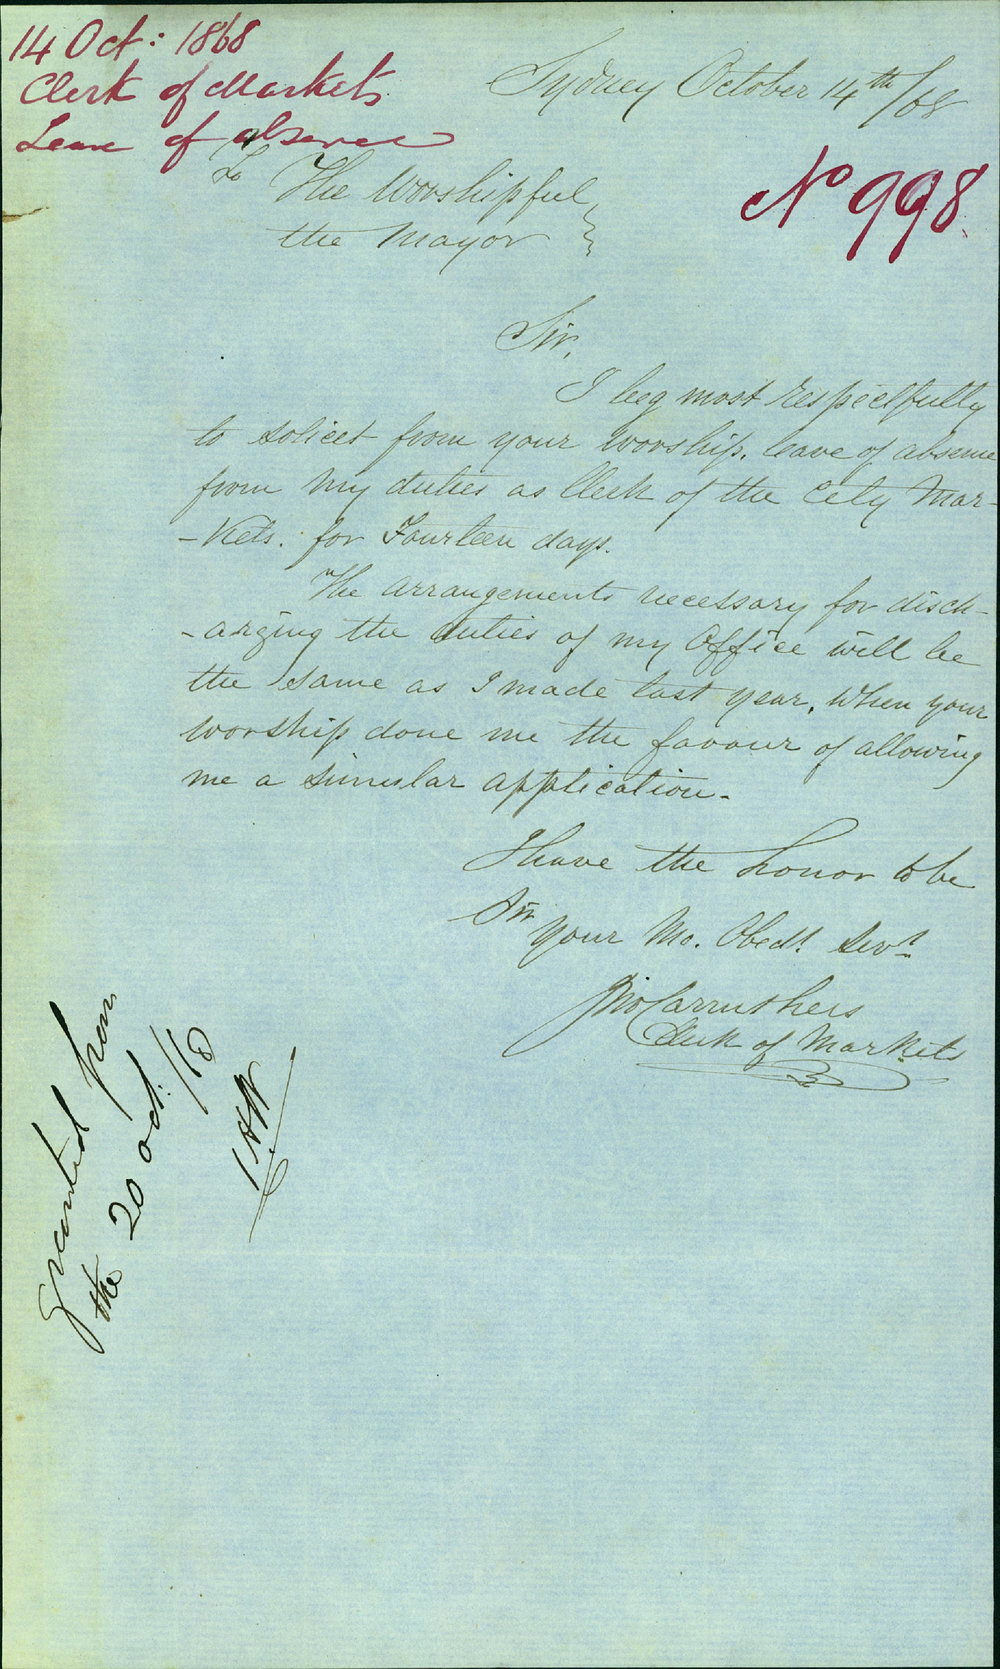 14 Oct: 1868
Clerk of Markets
Leave of absence
Sydney October 14th/68
No 998.
To The Worshipful
the Mayor
Sir,
I beg most respectfully
to solicet from your worship. leave of absence
from my duties as Clerk of the City Mar-
-kets. for Fourteen days.
The arrangements necessary for disch-
-arging the duties of my Office will be
the same as I made last year, when your
worship done me the favour of allowing
me a simular application-
I have the honor to be
Sir
your Mo. Obedt. Servt.
Jno Carruthers
Clerk of Markets
granted from
the 20 oct: